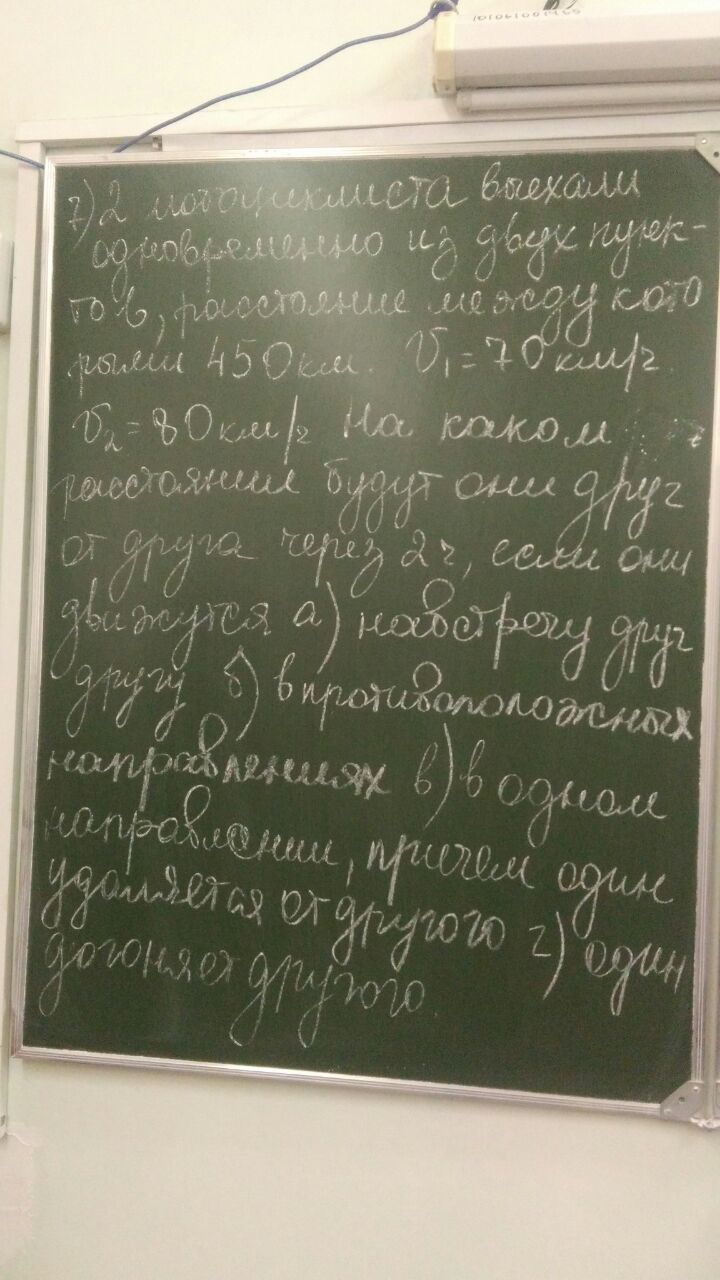 7) 2 мотоциклиста выехали
одновременно из двух пунк-
тов, расстояние между кото
рыми 450 км. V₁ = 70 км/ч
V₂ = 80 км/ч На каком
расстоянии будут они друг
от друга через 2 ч, если они
движутся а) навстречу друг
другу б) в противоположных
направлениях в) в одном
направлении, причем один
удаляется от другого г) один
догоняет другого